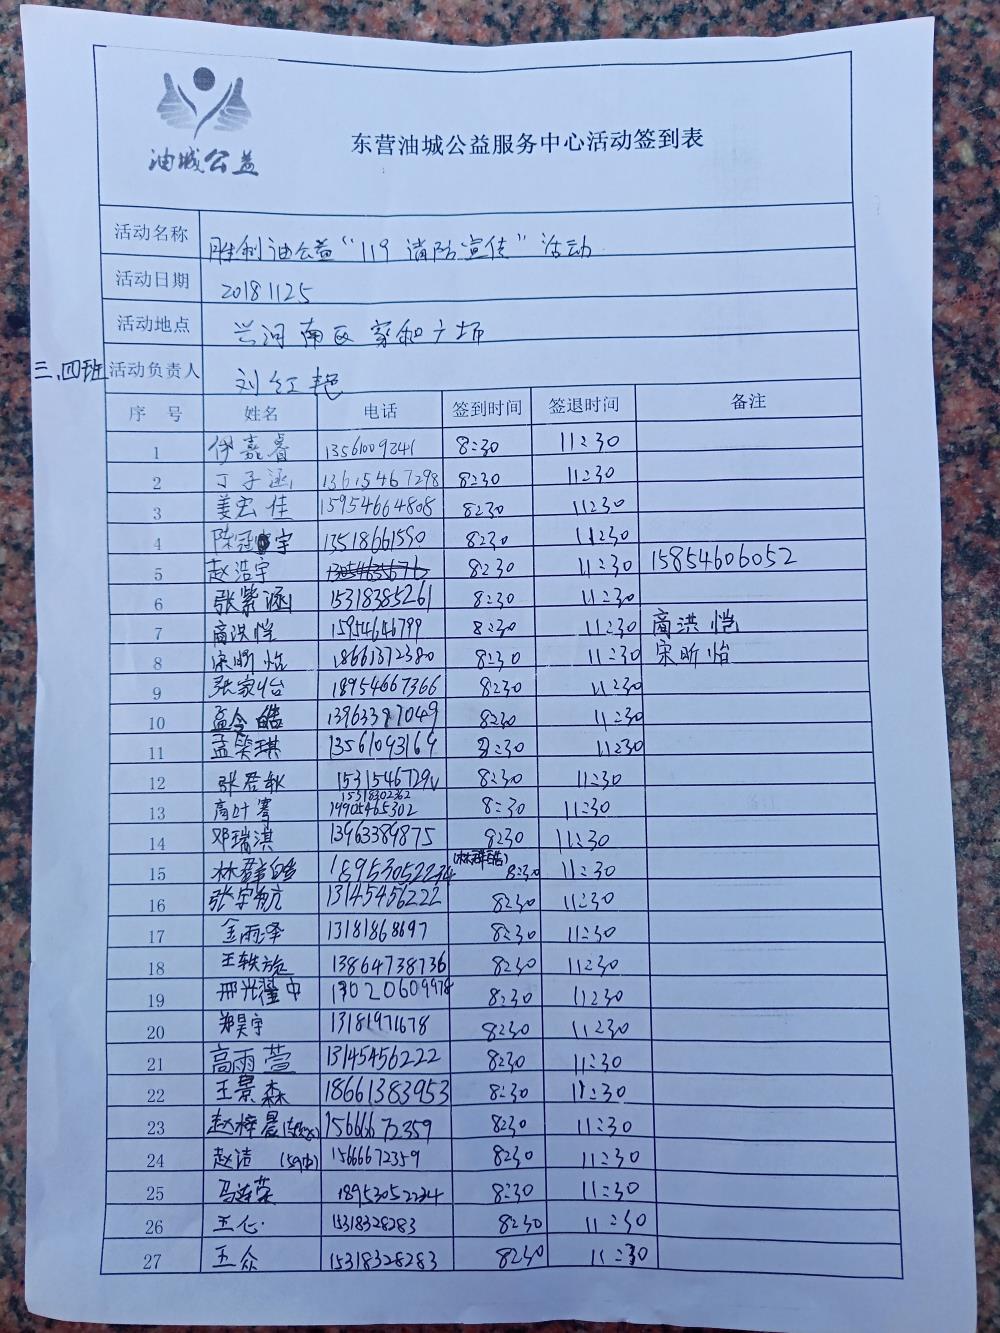 油城公益
东营油城公益服务中心活动签到表
活动名称 胜利油公益“119 消防宣传”活动
活动日期 20181125
活动地点 兴河南区 家和广场
三.四班 活动负责人 刘红艳
序 号 姓名 电话 签到时间 签退时间 备注
1 伊嘉睿 13561009241 8:30 11:30
2 丁子涵 13615467298 8:30 11:30
3 姜宏佳 15954664808 8:30 11:30
4 陈冠宇 13518661590 8:30 11:30
5 赵浩宇 8:30 11:30 15854606052
6 张紫涵 15318385261 8:30 11:30
7 商洪恺 15954646799 8:30 11:30 商洪恺
8 宋昕怡 18661372380 8:30 11:30 宋昕怡
9 张家怡 18954667366 8:30 11:30
10 孟令皓 13963397049 8:30 11:30
11 孟笑琪 13561093169 8:30 11:30
12 张君秋 8:30 11:30
15318302362
13 14905465302 8:30 11:30
14 邓瑞淇 13963389875 8:30 11:30
15 林群皓 18953052234 (林群皓) 8:30 11:30
16 张宇航 13145456222 8:30 11:30
17 金雨泽 13181868697 8:30 11:30
18 王轶旋 13864738736 8:30 11:30
19 邢光耀中 17020609978 8:30 11:30
20 郑昊宇 13181971678 8:30 11:30
21 高雨萱 13145456222 8:30 11:30
22 王景森 18661383953 8:30 11:30
23 赵梓晨 15666672359 8:30 11:30
24 赵洁 (59中) 15666672359 8:30 11:30
25 马莲荣 18953052234 8:30 11:30
26 王仁 15318328283 8:30 11:30
27 王众 15318328283 8:30 11:30